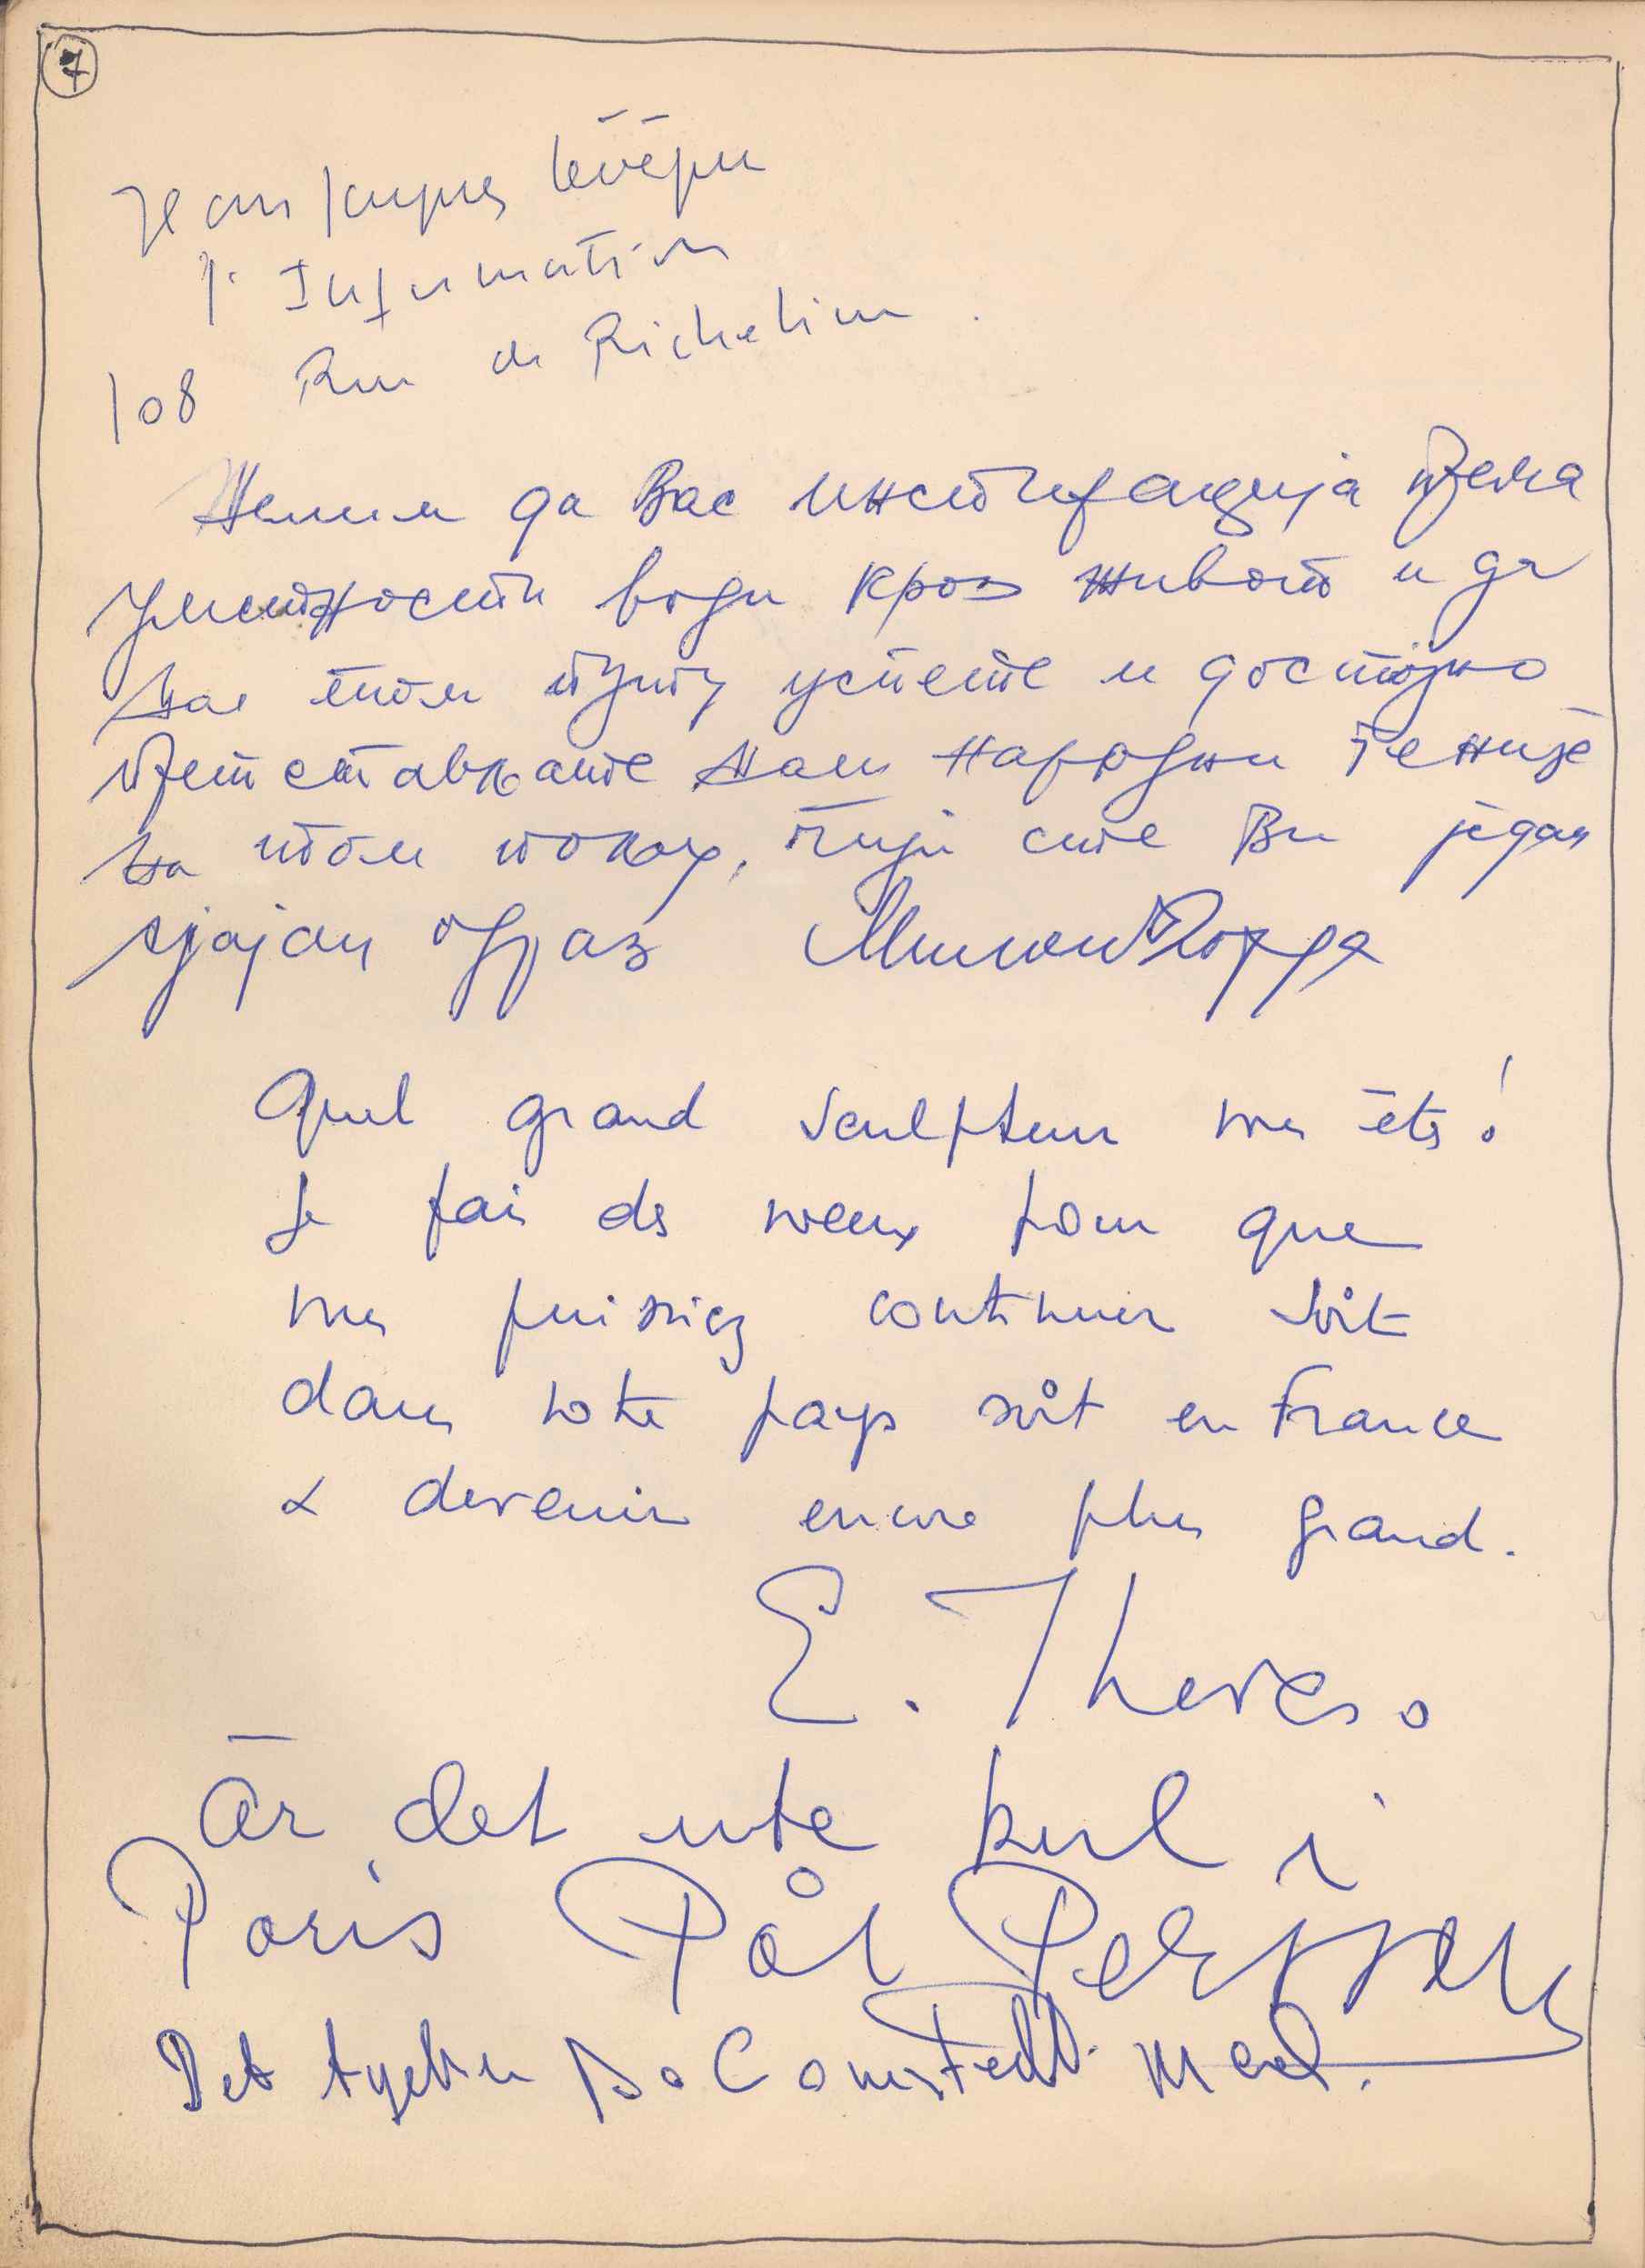 7
Jean Jacques Lévêque
l'Information
108 Rue de Richelieu
Желим да Вас инспирација према
уметности води кроз живот и да
на том путу успете и достојно
претстављате наш народни гениј
на том пољу, чији сте Ви један
сјајан образ Милош
Quel grand sculpteur vous êtes!
Je fais des voeux pour que
vous puissiez continuer soit
dans votre pays soit en France
& devenir encore plus grand.
E. Theves.
Är det inte kul i
Paris Pål Persson
Det tycker Bo Cornstedt med.